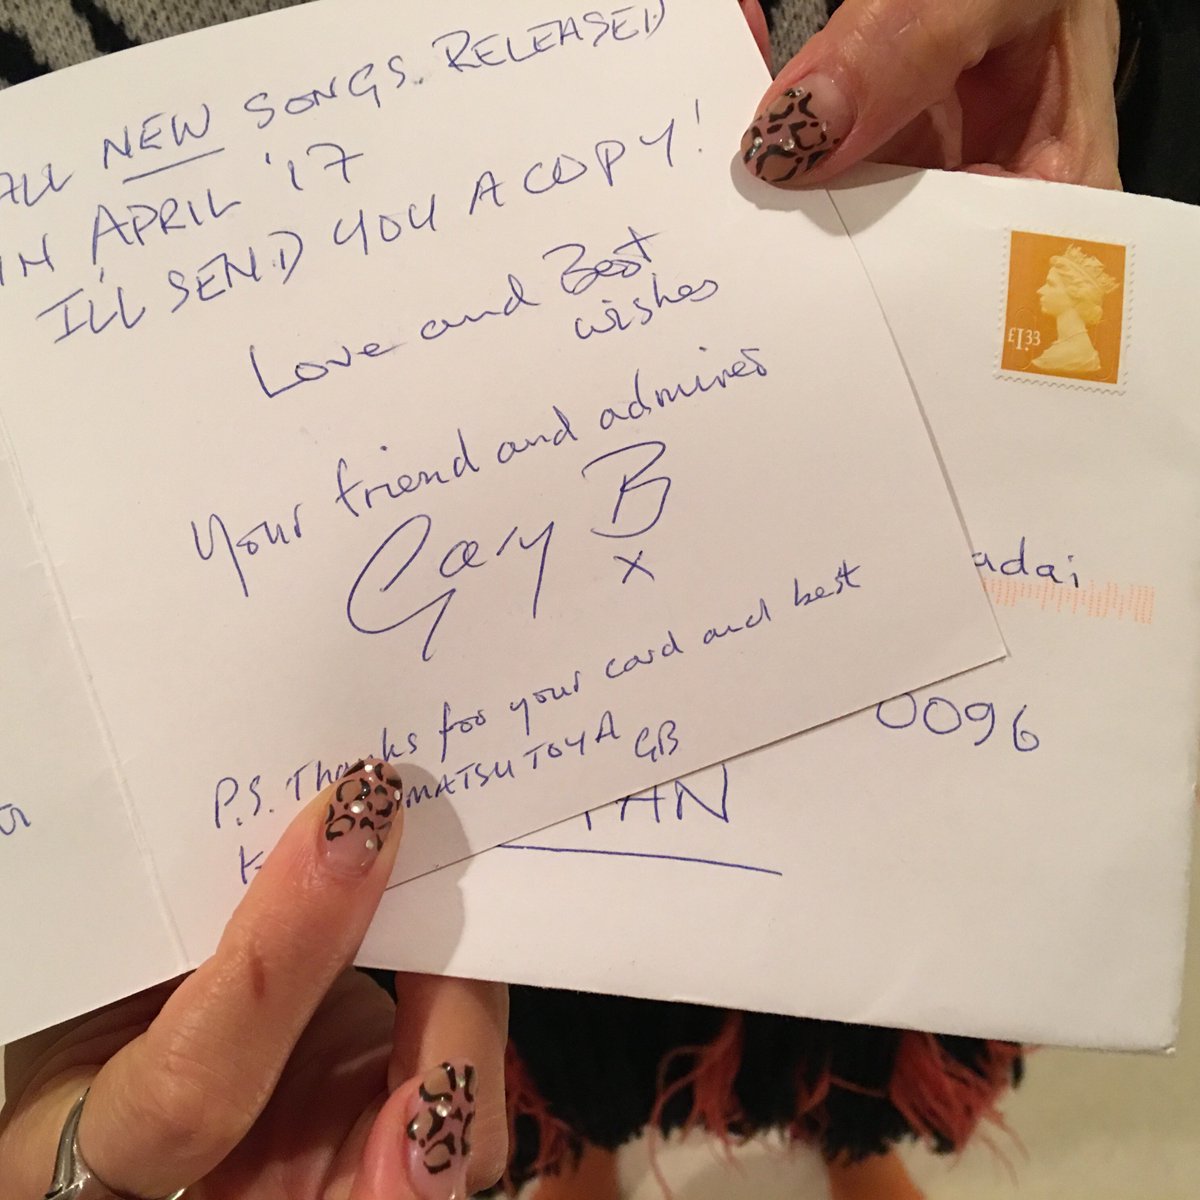 ALL NEW SONGS. RELEASED
IN APRIL '17
I'LL SEND YOU A COPY!
Love and Best
wishes
Your friend and admirer
Gary B
x
P.S. Thanks for your card and best
MATSUTOYA GB
£1.33
adai
0096
PAN